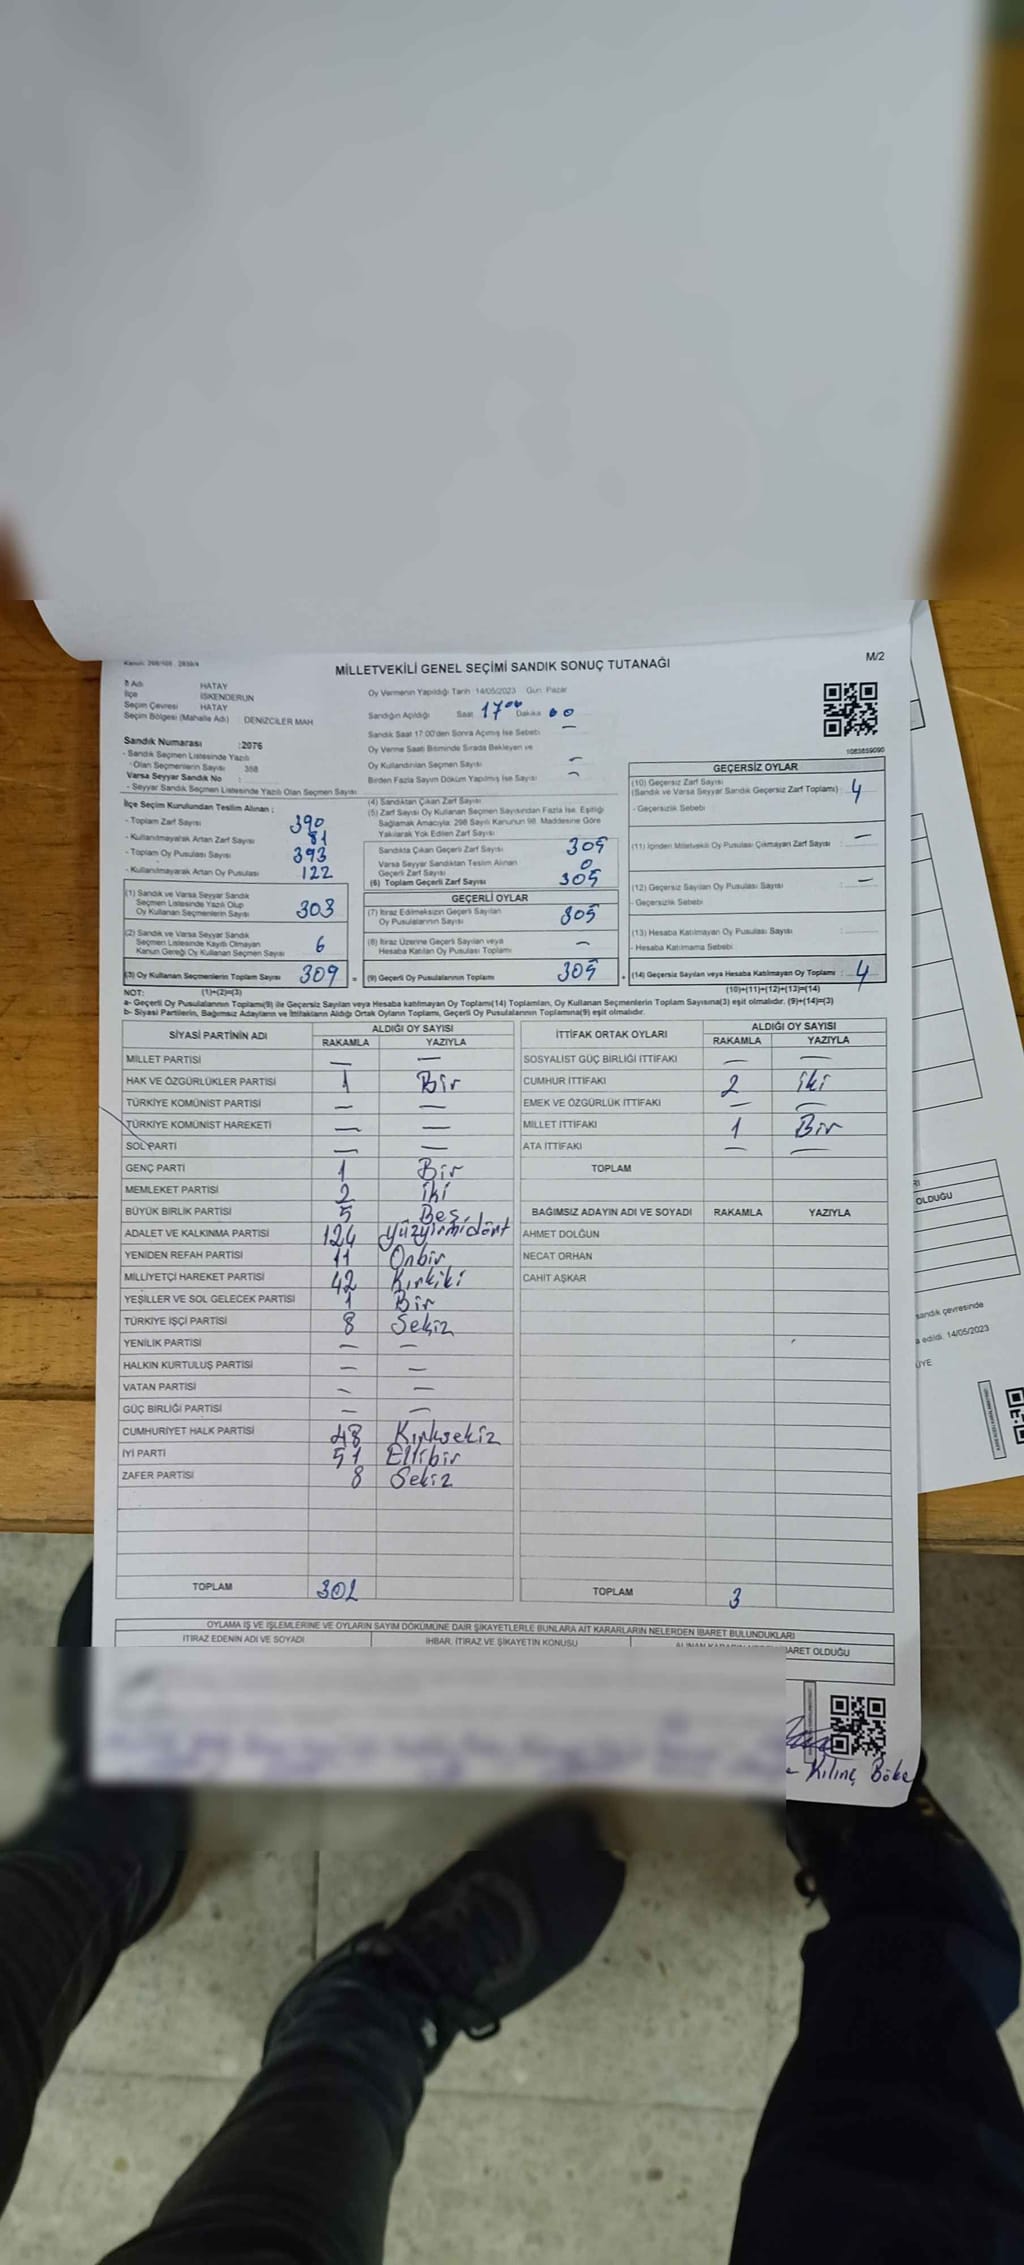 Kanun: 298/105 , 2839/4
MİLLETVEKİLİ GENEL SEÇİMİ SANDIK SONUÇ TUTANAĞI
M/2
İl Adı HATAY
İlçe İSKENDERUN
Seçim Çevresi HATAY
Seçim Bölgesi (Mahalle Adı) DENİZCİLER MAH
Sandık Numarası :2076
- Sandık Seçmen Listesinde Yazılı
Olan Seçmenlerin Sayısı 358
Varsa Seyyar Sandık No :
- Seyyar Sandık Seçmen Listesinde Yazılı Olan Seçmen Sayısı
Oy Vermenin Yapıldığı Tarih 14/05/2023 Gün: Pazar
Sandığın Açıldığı Saat 17⁰⁰ Dakika 00
Sandık Saat 17:00'den Sonra Açılmış İse Sebebi —
Oy Verme Saati Bitiminde Sırada Bekleyen ve
Oy Kullandırılan Seçmen Sayısı —
Birden Fazla Sayım Döküm Yapılmış İse Sayısı —
1083859090
İlçe Seçim Kurulundan Teslim Alınan :
- Toplam Zarf Sayısı 390
- Kullanılmayarak Artan Zarf Sayısı 81
- Toplam Oy Pusulası Sayısı 393
- Kullanılmayarak Artan Oy Pusulası 122
(1) Sandık ve Varsa Seyyar Sandık
Seçmen Listesinde Yazılı Olup
Oy Kullanan Seçmenlerin Sayısı 303
(2) Sandık ve Varsa Seyyar Sandık
Seçmen Listesinde Kaydı Olmayan
Kanun Gereği Oy Kullanan Seçmen Sayısı 6
(3) Oy Kullanan Seçmenlerin Toplam Sayısı 309 =
(4) Sandıktan Çıkan Zarf Sayısı
(5) Zarf Sayısı Oy Kullanan Seçmen Sayısından Fazla İse, Eşitliği
Sağlamak Amacıyla; 298 Sayılı Kanunun 98. Maddesine Göre
Yakılarak Yok Edilen Zarf Sayısı
Sandıkta Çıkan Geçerli Zarf Sayısı 305
Varsa Seyyar Sandıktan Teslim Alınan
Geçerli Zarf Sayısı 0
(6) Toplam Geçerli Zarf Sayısı 305
GEÇERLİ OYLAR
(7) İtiraz Edilmeksizin Geçerli Sayılan
Oy Pusulalarının Sayısı 305
(8) İtiraz Üzerine Geçerli Sayılan veya
Hesaba Katılan Oy Pusulası Toplamı —
(9) Geçerli Oy Pusulalarının Toplamı 305 +
GEÇERSİZ OYLAR
(10) Geçersiz Zarf Sayısı
(Sandık ve Varsa Seyyar Sandık Geçersiz Zarf Toplamı) : 4
- Geçersizlik Sebebi
(11) İçinden Milletvekili Oy Pusulası Çıkmayan Zarf Sayısı : —
(12) Geçersiz Sayılan Oy Pusulası Sayısı : —
- Geçersizlik Sebebi
(13) Hesaba Katılmayan Oy Pusulası Sayısı :
- Hesaba Katılmama Sebebi
(14) Geçersiz Sayılan veya Hesaba Katılmayan Oy Toplamı : 4
NOT: (1)+(2)=(3) (10)+(11)+(12)+(13)=(14)
a- Geçerli Oy Pusulalarının Toplamı(9) ile Geçersiz Sayılan veya Hesaba katılmayan Oy Toplamı(14) Toplamları, Oy Kullanan Seçmenlerin Toplam Sayısına(3) eşit olmalıdır. (9)+(14)=(3)
b- Siyasi Partilerin, Bağımsız Adayların ve İttifakların Aldığı Ortak Oyların Toplamı, Geçerli Oy Pusulalarının Toplamına(9) eşit olmalıdır.
SİYASİ PARTİNİN ADI ALDIĞI OY SAYISI
RAKAMLA YAZIYLA
MİLLET PARTİSİ — —
HAK VE ÖZGÜRLÜKLER PARTİSİ 1 Bir
TÜRKİYE KOMÜNİST PARTİSİ — —
TÜRKİYE KOMÜNİST HAREKETİ — —
SOL PARTİ — —
GENÇ PARTİ 1 Bir
MEMLEKET PARTİSİ 2 iki
BÜYÜK BİRLİK PARTİSİ 5 Beş
ADALET VE KALKINMA PARTİSİ 124 yüzyirmidört
YENİDEN REFAH PARTİSİ 11 Onbir
MİLLİYETÇİ HAREKET PARTİSİ 42 Kırkiki
YEŞİLLER VE SOL GELECEK PARTİSİ 1 Bir
TÜRKİYE İŞÇİ PARTİSİ 8 Sekiz
YENİLİK PARTİSİ — —
HALKIN KURTULUŞ PARTİSİ — —
VATAN PARTİSİ — —
GÜÇ BİRLİĞİ PARTİSİ — —
CUMHURİYET HALK PARTİSİ 48 Kırksekiz
İYİ PARTİ 51 Ellibir
ZAFER PARTİSİ 8 Sekiz
TOPLAM 302
İTTİFAK ORTAK OYLARI ALDIĞI OY SAYISI
RAKAMLA YAZIYLA
SOSYALİST GÜÇ BİRLİĞİ İTTİFAKI — —
CUMHUR İTTİFAKI 2 iki
EMEK VE ÖZGÜRLÜK İTTİFAKI — —
MİLLET İTTİFAKI 1 Bir
ATA İTTİFAKI — —
TOPLAM
BAĞIMSIZ ADAYIN ADI VE SOYADI RAKAMLA YAZIYLA
AHMET DOLĞUN
NECAT ORHAN
CAHİT AŞKAR
TOPLAM 3
OYLAMA İŞ VE İŞLEMLERİNE VE OYLARIN SAYIM DÖKÜMÜNE DAİR ŞİKAYETLERLE BUNLARA AİT KARARLARIN NELERDEN İBARET BULUNDUKLARI
İTİRAZ EDENİN ADI VE SOYADI İHBAR, İTİRAZ VE ŞİKAYETİN KONUSU
BARET OLDUĞU
Kılınç Böke
OLDUĞU
sandık çevresinde
edildi. 14/05/2023
ÜYE